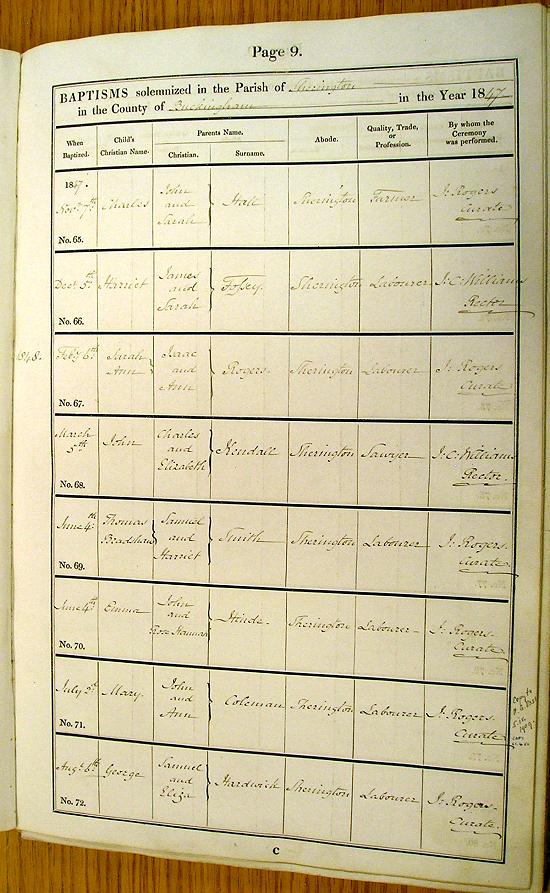 Page 9.
BAPTISMS solemnized in the Parish of Sherington
in the County of Buckingham in the Year 1847
When Baptized. Child's Christian Name. Parents Name. Abode. Quality, Trade, or Profession. By whom the Ceremony was performed.
Christian. Surname.
1847.
Novr 7th Charles John and Sarah Hall Sherington Farmer J. Rogers Curate
No. 65.
Decr 5th Harriet James and Sarah Fossey. Sherington Labourer J. C. Williams Rector
No. 66.
1848. Feby 6th Sarah Ann Isaac and Ann Rogers Sherington Labourer J. Rogers Curate
No. 67.
March 5th John Charles and Elizabeth Kendall Sherington Sawyer J. C. Williams Rector.
No. 68.
June 4th Thomas Bradshaw Samuel and Harriet Smith Sherington Labourer J. Rogers. Curate
No. 69.
June 4th Emma John and Rose Hannah Hinde Sherington Labourer J. Rogers. Curate
No. 70.
July 2d Mary. John and Ann Coleman Sherington Labourer J. Rogers. Curate
No. 71.
Copy to
Augt 6th George Samuel and Eliza Hardwick Sherington Labourer J. Rogers. Curate.
No. 72.
C